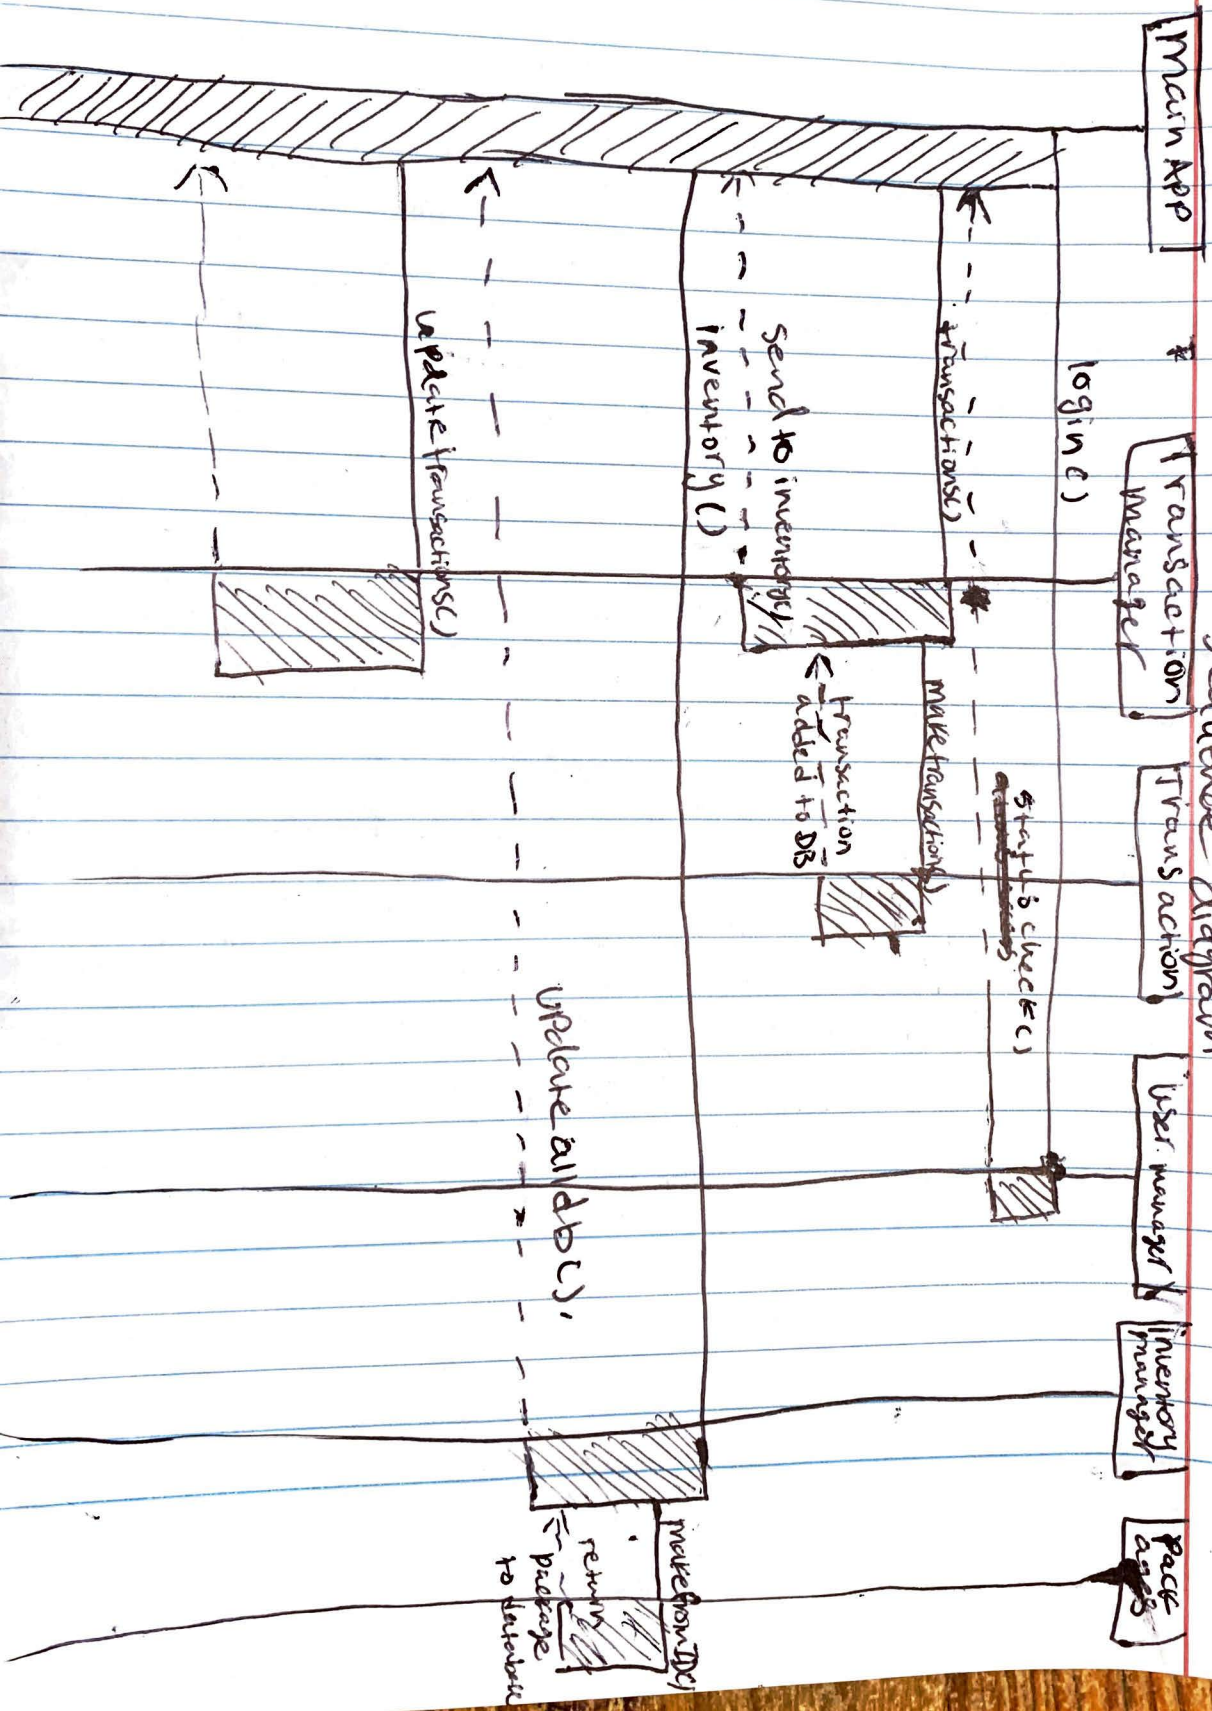 diagram
Main App
Transaction
manager
Transaction
user manager
inventory
manager
Pack
ages
login()
status check()
transactions()
maketransactions()
transaction
added to DB
Send to inventory()
inventory()
makefromID()
return
package
to database
update all db().
update transactions()